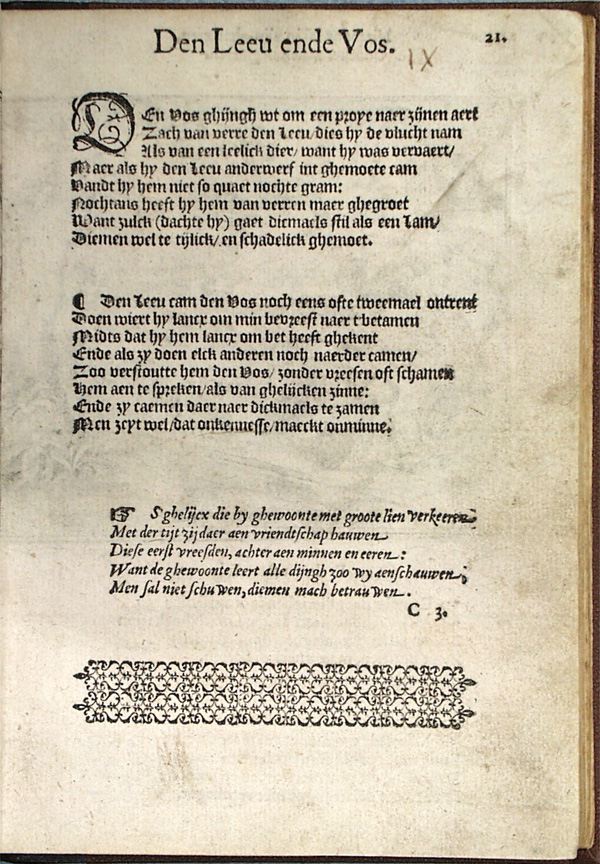 Den Leeu ende Vos.
21.
IX
EEn Vos ghijngh wt om een proye naer zijnen aert
Zach van verre den Leeu/dies hy de vlucht nam
Als van een leelick dier/ want hy was vervaert/
Maer als hy den Leeu anderwerf int ghemoete cam
Vandt hy hem niet so quaet nochte gram:
Nochtans heeft hy hem van verren maer ghegroet
Want zulck (dachte hy) gaet diemaels stil als een Lam/
Diemen wel te tijlick/en schadelick ghemoet.
¶ Den Leeu cam den Vos noch eens ofte tweemael ontrent
Doen wiert hy lancx om min bevreest naer t'betamen
Midts dat hy hem lancx om bet heeft ghekent
Ende als zy doen elck anderen noch naerder camen/
Zoo verstoutte hem den Vos/ zonder vreesen oft schamen
Hem aen te spreken/als van ghelijcken zinne:
Ende zy caemen daer naer dickmaels te zamen
Men zeyt wel/dat onkennesse/maeckt onminne.
☞ S'ghelijcx die by ghewoonte met groote lien verkeeren
Met der tijt zij daer aen vriendtschap bauwen
Diese eerst vreesden, achter aen minnen en eeren:
Want de ghewoonte leert alle dijngh zoo wy aenschauwen,
Men sal niet schuwen, diemen mach betrauwen.
C 3.